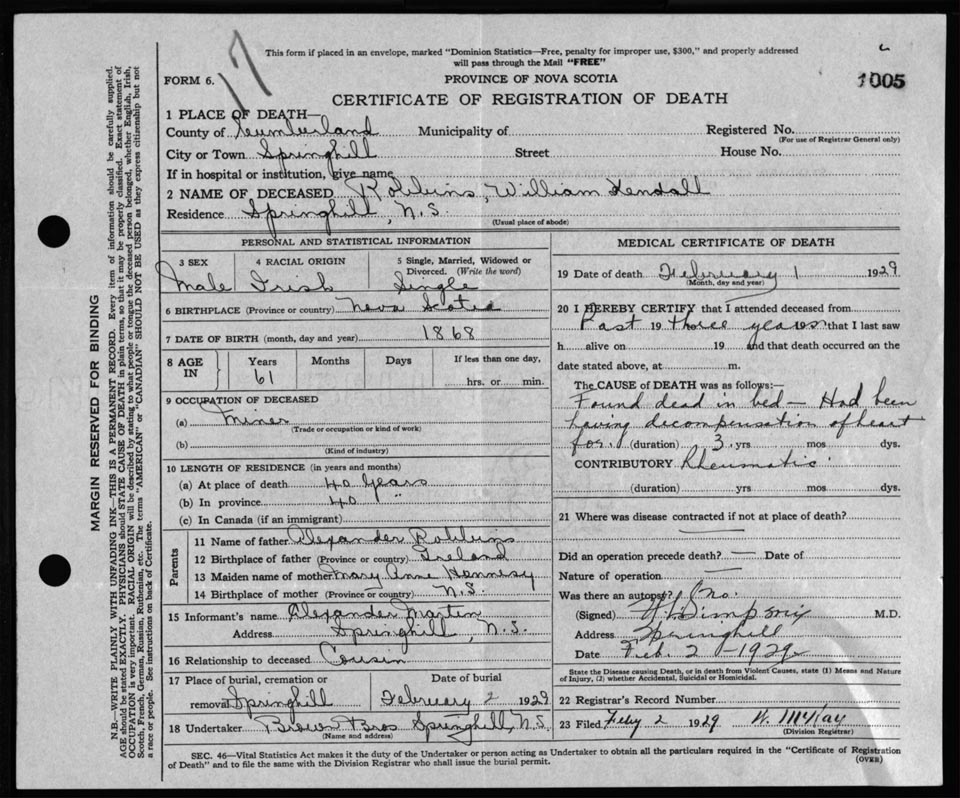 This form if placed in an envelope, marked "Dominion Statistics—Free, penalty for improper use, $300," and properly addressed
will pass through the Mail "FREE"
17
1005
FORM 6.
PROVINCE OF NOVA SCOTIA
CERTIFICATE OF REGISTRATION OF DEATH
1 PLACE OF DEATH—
County of Cumberland Municipality of Registered No.
(For use of Registrar General only)
City or Town Springhill Street House No.
If in hospital or institution, give name
2 NAME OF DECEASED Robbins, William Kendall
Residence Springhill, N.S.
(Usual place of abode)
PERSONAL AND STATISTICAL INFORMATION
3 SEX 4 RACIAL ORIGIN 5 Single, Married, Widowed or
Divorced. (Write the word)
Male Irish Single
6 BIRTHPLACE (Province or country) Nova Scotia
7 DATE OF BIRTH (month, day and year) 1868
8 AGE IN Years Months Days If less than one day,
61 hrs. or min.
9 OCCUPATION OF DECEASED
(a) Miner
(Trade or occupation or kind of work)
(b)
(Kind of industry)
10 LENGTH OF RESIDENCE (in years and months)
(a) At place of death 40 years
(b) In province 40 "
(c) In Canada (if an immigrant)
Parents
11 Name of father Alexander Robbins
12 Birthplace of father (Province or country) Ireland
13 Maiden name of mother Mary Anne Hennesy
14 Birthplace of mother (Province or country) N.S.
15 Informant's name Alexander Martin
Address Springhill, N.S.
16 Relationship to deceased Cousin
17 Place of burial, cremation or Date of burial
removal Springhill February 2 1929
18 Undertaker Brown Bros Springhill, N.S.
(Name and address)
MEDICAL CERTIFICATE OF DEATH
19 Date of death February 1 1929
(Month, day and year)
20 I HEREBY CERTIFY that I attended deceased from
Past 19 three years that I last saw
h alive on 19 and that death occurred on the
date stated above, at m.
The CAUSE of DEATH was as follows:—
Found dead in bed — Had been
having decompensation of heart
for (duration) 3 yrs mos dys.
CONTRIBUTORY Rheumatic.
(duration) yrs mos dys.
21 Where was disease contracted if not at place of death?
—
Did an operation precede death? — Date of
Nature of operation —
Was there an autopsy? No.
(Signed) M.D.
Address Springhill
Date Feb. 2 - 1929
State the Disease causing Death, or in death from Violent Causes, state (1) Means and Nature
of Injury, (2) whether Accidental, Suicidal or Homicidal.
22 Registrar's Record Number
23 Filed Feby 2 1929
(Division Registrar)
SEC. 46—Vital Statistics Act makes it the duty of the Undertaker or person acting as Undertaker to obtain all the particulars required in the "Certificate of Registration
of Death" and to file the same with the Division Registrar who shall issue the burial permit.
(OVER)
MARGIN RESERVED FOR BINDING
N.B.—WRITE PLAINLY WITH UNFADING INK—THIS IS A PERMANENT RECORD. Every item of information should be carefully supplied.
AGE should be stated EXACTLY. PHYSICIANS should STATE CAUSE OF DEATH in plain terms, so that it may be properly classified. Exact statement of
OCCUPATION is very important. RACIAL ORIGIN will be described by stating to what people or tongue the deceased person belonged, whether English, Irish,
Scotch, French, German, Russian, Ruthenian, etc. The terms "AMERICAN" or "CANADIAN" SHOULD NOT BE USED as they express citizenship but not
a race or people. See instructions on back of Certificate.